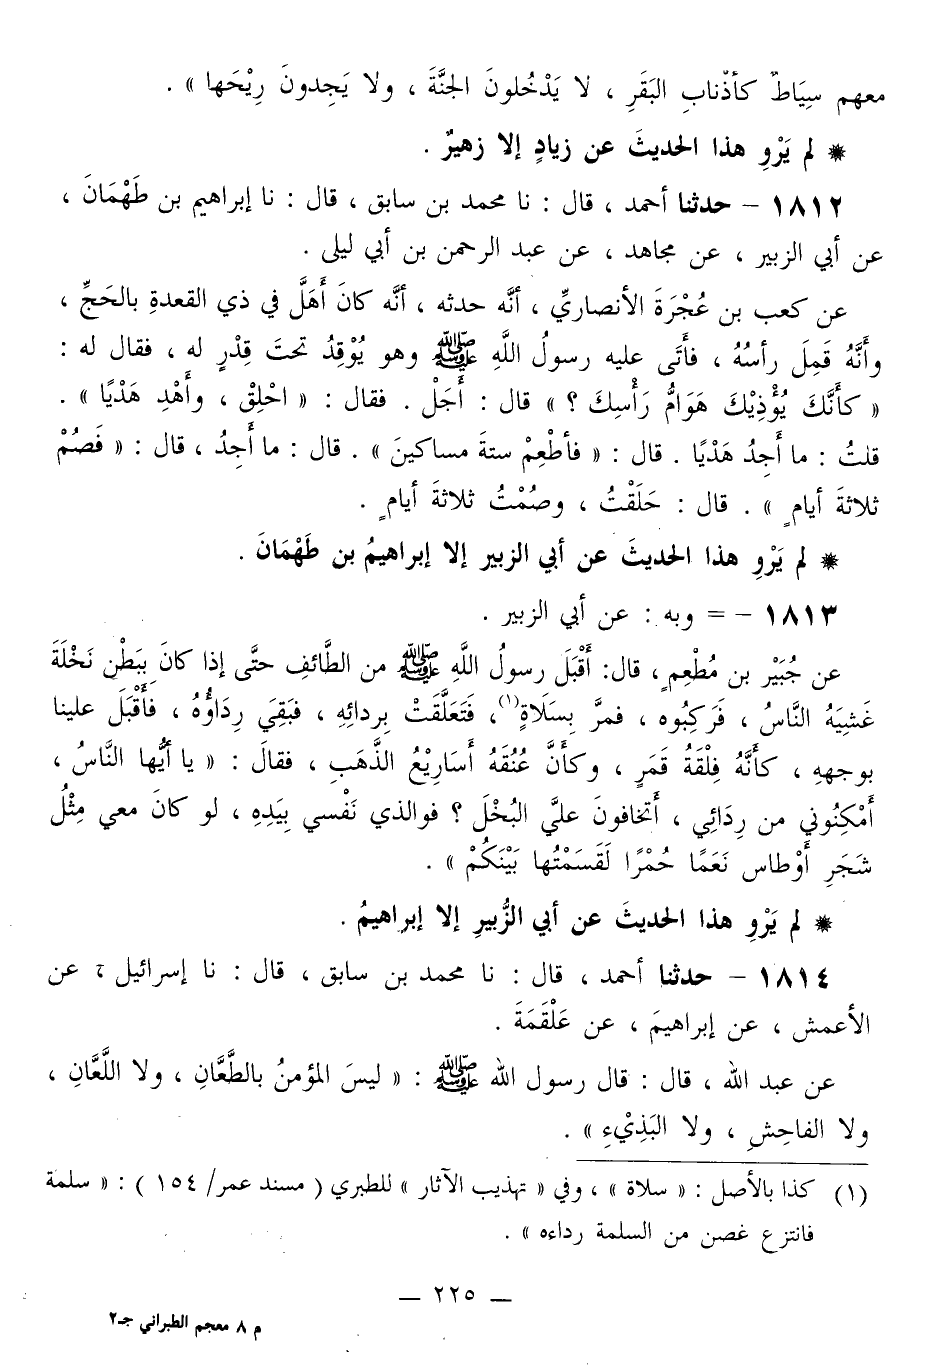 معهم سِيَاطٌ كأَذْنابِ البَقَرِ ، لا يَدْخُلونَ الجنَّةَ ، ولا يَجِدونَ رِيْحَها » .
* لم يَرْوِ هذا الحديثَ عن زيادٍ إلا زهيرٌ .
١٨١٢ – حدثنا أحمد ، قال : نا محمد بن سابق ، قال : نا إبراهيم بن طَهْمَانَ ،
عن أبي الزبير ، عن مجاهد ، عن عبد الرحمن بن أبي ليلى .
عن كعب بن عُجْرَةَ الأنصاريِّ ، أنَّه حدثه ، أنَّه كانَ أَهَلَّ في ذي القعدةِ بالحَجِّ ،
وأَنَّهُ قَمِلَ رأسُهُ ، فأَتَى عليه رسولُ اللَّهِ ﷺ وهو يُوْقِدُ تحتَ قِدْرٍ له ، فقال له :
« كأَنَّكَ يُؤْذِيْكَ هَوَامُّ رَأْسِكَ ؟ » قال : أَجَلْ . فقال : « احْلِقْ ، وأَهْدِ هَدْيًا » .
قلتُ : ما أَجِدُ هَدْيًا . قال : « فأطْعِمْ ستةَ مساكينَ » . قال : ما أَجِدُ ، قال : « فَصُمْ
ثلاثةَ أيامٍ » . قال : حَلَقْتُ ، وصُمْتُ ثلاثةَ أيامٍ .
* لم يَرْوِ هذا الحديثَ عن أبي الزبير إلا إبراهيمُ بن طَهْمَانَ .
١٨١٣ – = وبه : عن أبي الزبير .
عن جُبَيْر بن مُطْعِمٍ ، قال: أَقْبَلَ رسولُ اللَّهِ ﷺ من الطَّائفِ حتَّى إذا كانَ بِبَطْنِ نَخْلَةَ
غَشِيَهُ النَّاسُ ، فَرَكِبُوه ، فمرَّ بِسَلَاةٍ(١)، فَتَعلَّقَتْ بِردائِهِ ، فبَقِيَ رِدَاؤُهُ ، فأَقْبَلَ علينا
بوجههِ ، كأَنَّهُ فِلْقَةُ قَمَرٍ ، وكأَنَّ عُنُقَهُ أَسَارِيْعُ الذَّهَبِ ، فقالَ : « يا أيُّها النَّاسُ ،
أَمْكِنُوني من رِدَائِي ، أَتخافونَ عليَّ البُخْلَ ؟ فوالذي نَفْسي بِيَدِهِ ، لو كانَ معي مِثْلُ
شَجَرِ أَوْطاس نَعَمًا حُمْرًا لَقَسَمْتُها بَيْنَكُمْ » .
* لم يَرْوِ هذا الحديثَ عن أبي الزُّبيرِ إلا إبراهيمُ .
١٨١٤ – حدثنا أحمد ، قال : نا محمد بن سابق ، قال : نا إسرائيل ، عن
الأعمش ، عن إبراهيمَ ، عن عَلْقَمَةَ .
عن عبد الله ، قال : قال رسول الله ﷺ : « ليسَ المؤمنُ بالطَّعَّانِ ، ولا اللَّعَّانِ ،
ولا الفاحِشِ ، ولا البَذِيْءِ » .
(١) كذا بالأصل : « سلاة » ، وفي « تهذيب الآثار » للطبري ( مسند عمر/ ١٥٤ ) : « سلمة
فانتزع غصن من السلمة رداءه » .
— ٢٢٥ —
م ٨ معجم الطبراني جـ٢